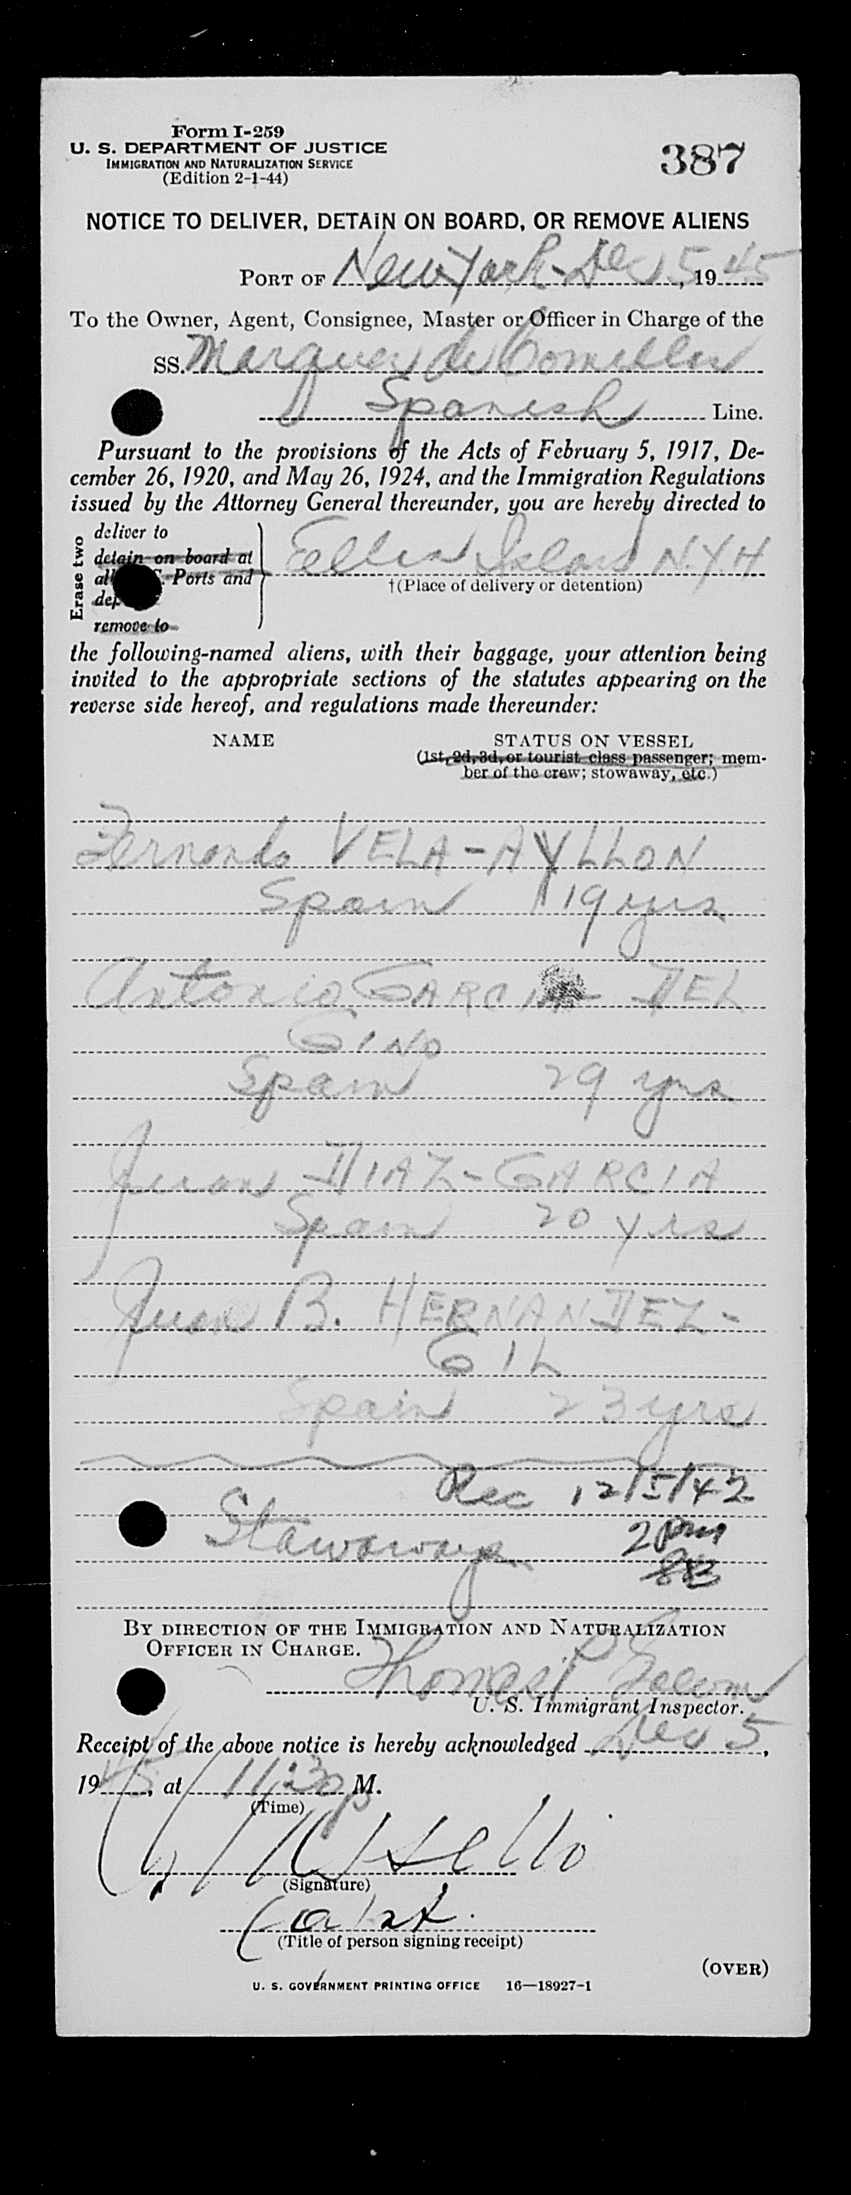 Form I-259
U. S. DEPARTMENT OF JUSTICE
IMMIGRATION AND NATURALIZATION SERVICE
(Edition 2-1-44)
387
NOTICE TO DELIVER, DETAIN ON BOARD, OR REMOVE ALIENS
PORT OF New York - Dec 5, 1945
To the Owner, Agent, Consignee, Master or Officer in Charge of the
SS. Marques de Comillas
Spanish Line.
Pursuant to the provisions of the Acts of February 5, 1917, De-
cember 26, 1920, and May 26, 1924, and the Immigration Regulations
issued by the Attorney General thereunder, you are hereby directed to
Erase two
deliver to
detain on board at
Ports and
remove to
Ellis Island N.Y.H
†(Place of delivery or detention)
the following-named aliens, with their baggage, your attention being
invited to the appropriate sections of the statutes appearing on the
reverse side hereof, and regulations made thereunder:
NAME STATUS ON VESSEL
(1st, 2d, 3d, or tourist class passenger; mem-
ber of the crew; stowaway, etc.)
Fernando VELA-AYLLON
Spain 19 yrs
Antonio GARCIA DEL
GINO
Spain 29 yrs
Juan DIAZ-GARCIA
Spain 20 yrs
Juan B. HERNANDEZ-
GIL
Spain 23 yrs
Rec 12/5/42
Stowaways 2 pm
BY DIRECTION OF THE IMMIGRATION AND NATURALIZATION
OFFICER IN CHARGE.
Thomas P.
U. S. Immigrant Inspector.
Receipt of the above notice is hereby acknowledged Dec 5,
1945, at 11:30 P M.
(Time)
(Signature)
(Title of person signing receipt)
(OVER)
U. S. GOVERNMENT PRINTING OFFICE 16—18927-1